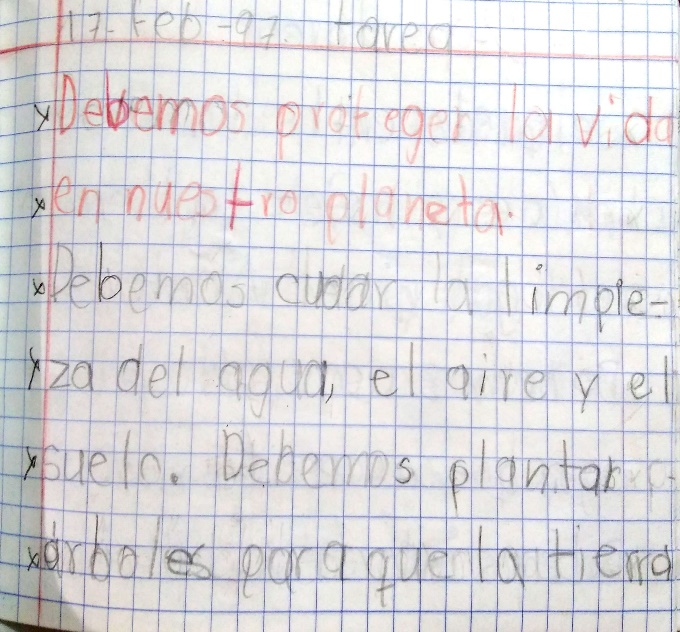 17-Feb-97. tarea
Debemos proteger la vida
en nuestro planeta.
Debemos cuidar la limple-
za del agua, el aire y el
suelo. Debemos plantar
árboles para que la tierra